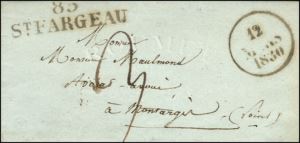 83
ST FARGEAU
12
1830
Monsieur
Monsieur Maulmond
Avocat-avoué
à Montargis
(Loiret)